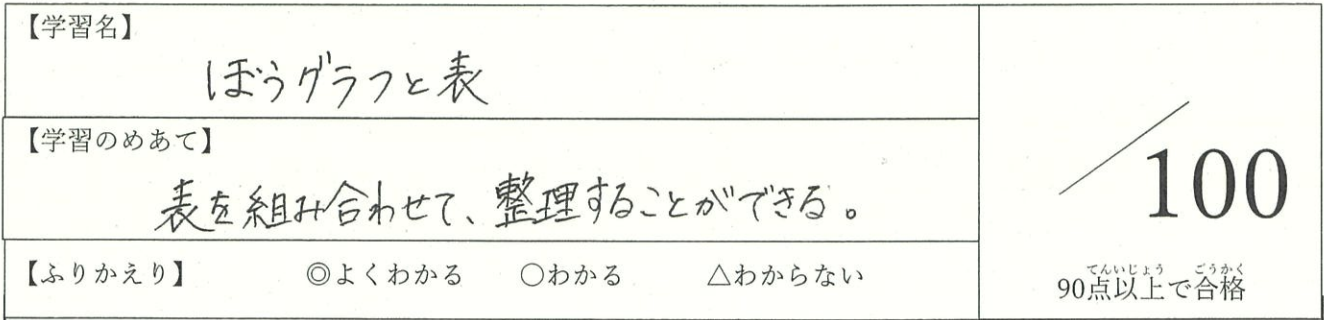 【学習名】
ぼうグラフと表
【学習のめあて】
表を組み合わせて、整理することができる。
【ふりかえり】 ◎よくわかる ○わかる △わからない
/100
てんいじょう ごうかく
90点以上で合格